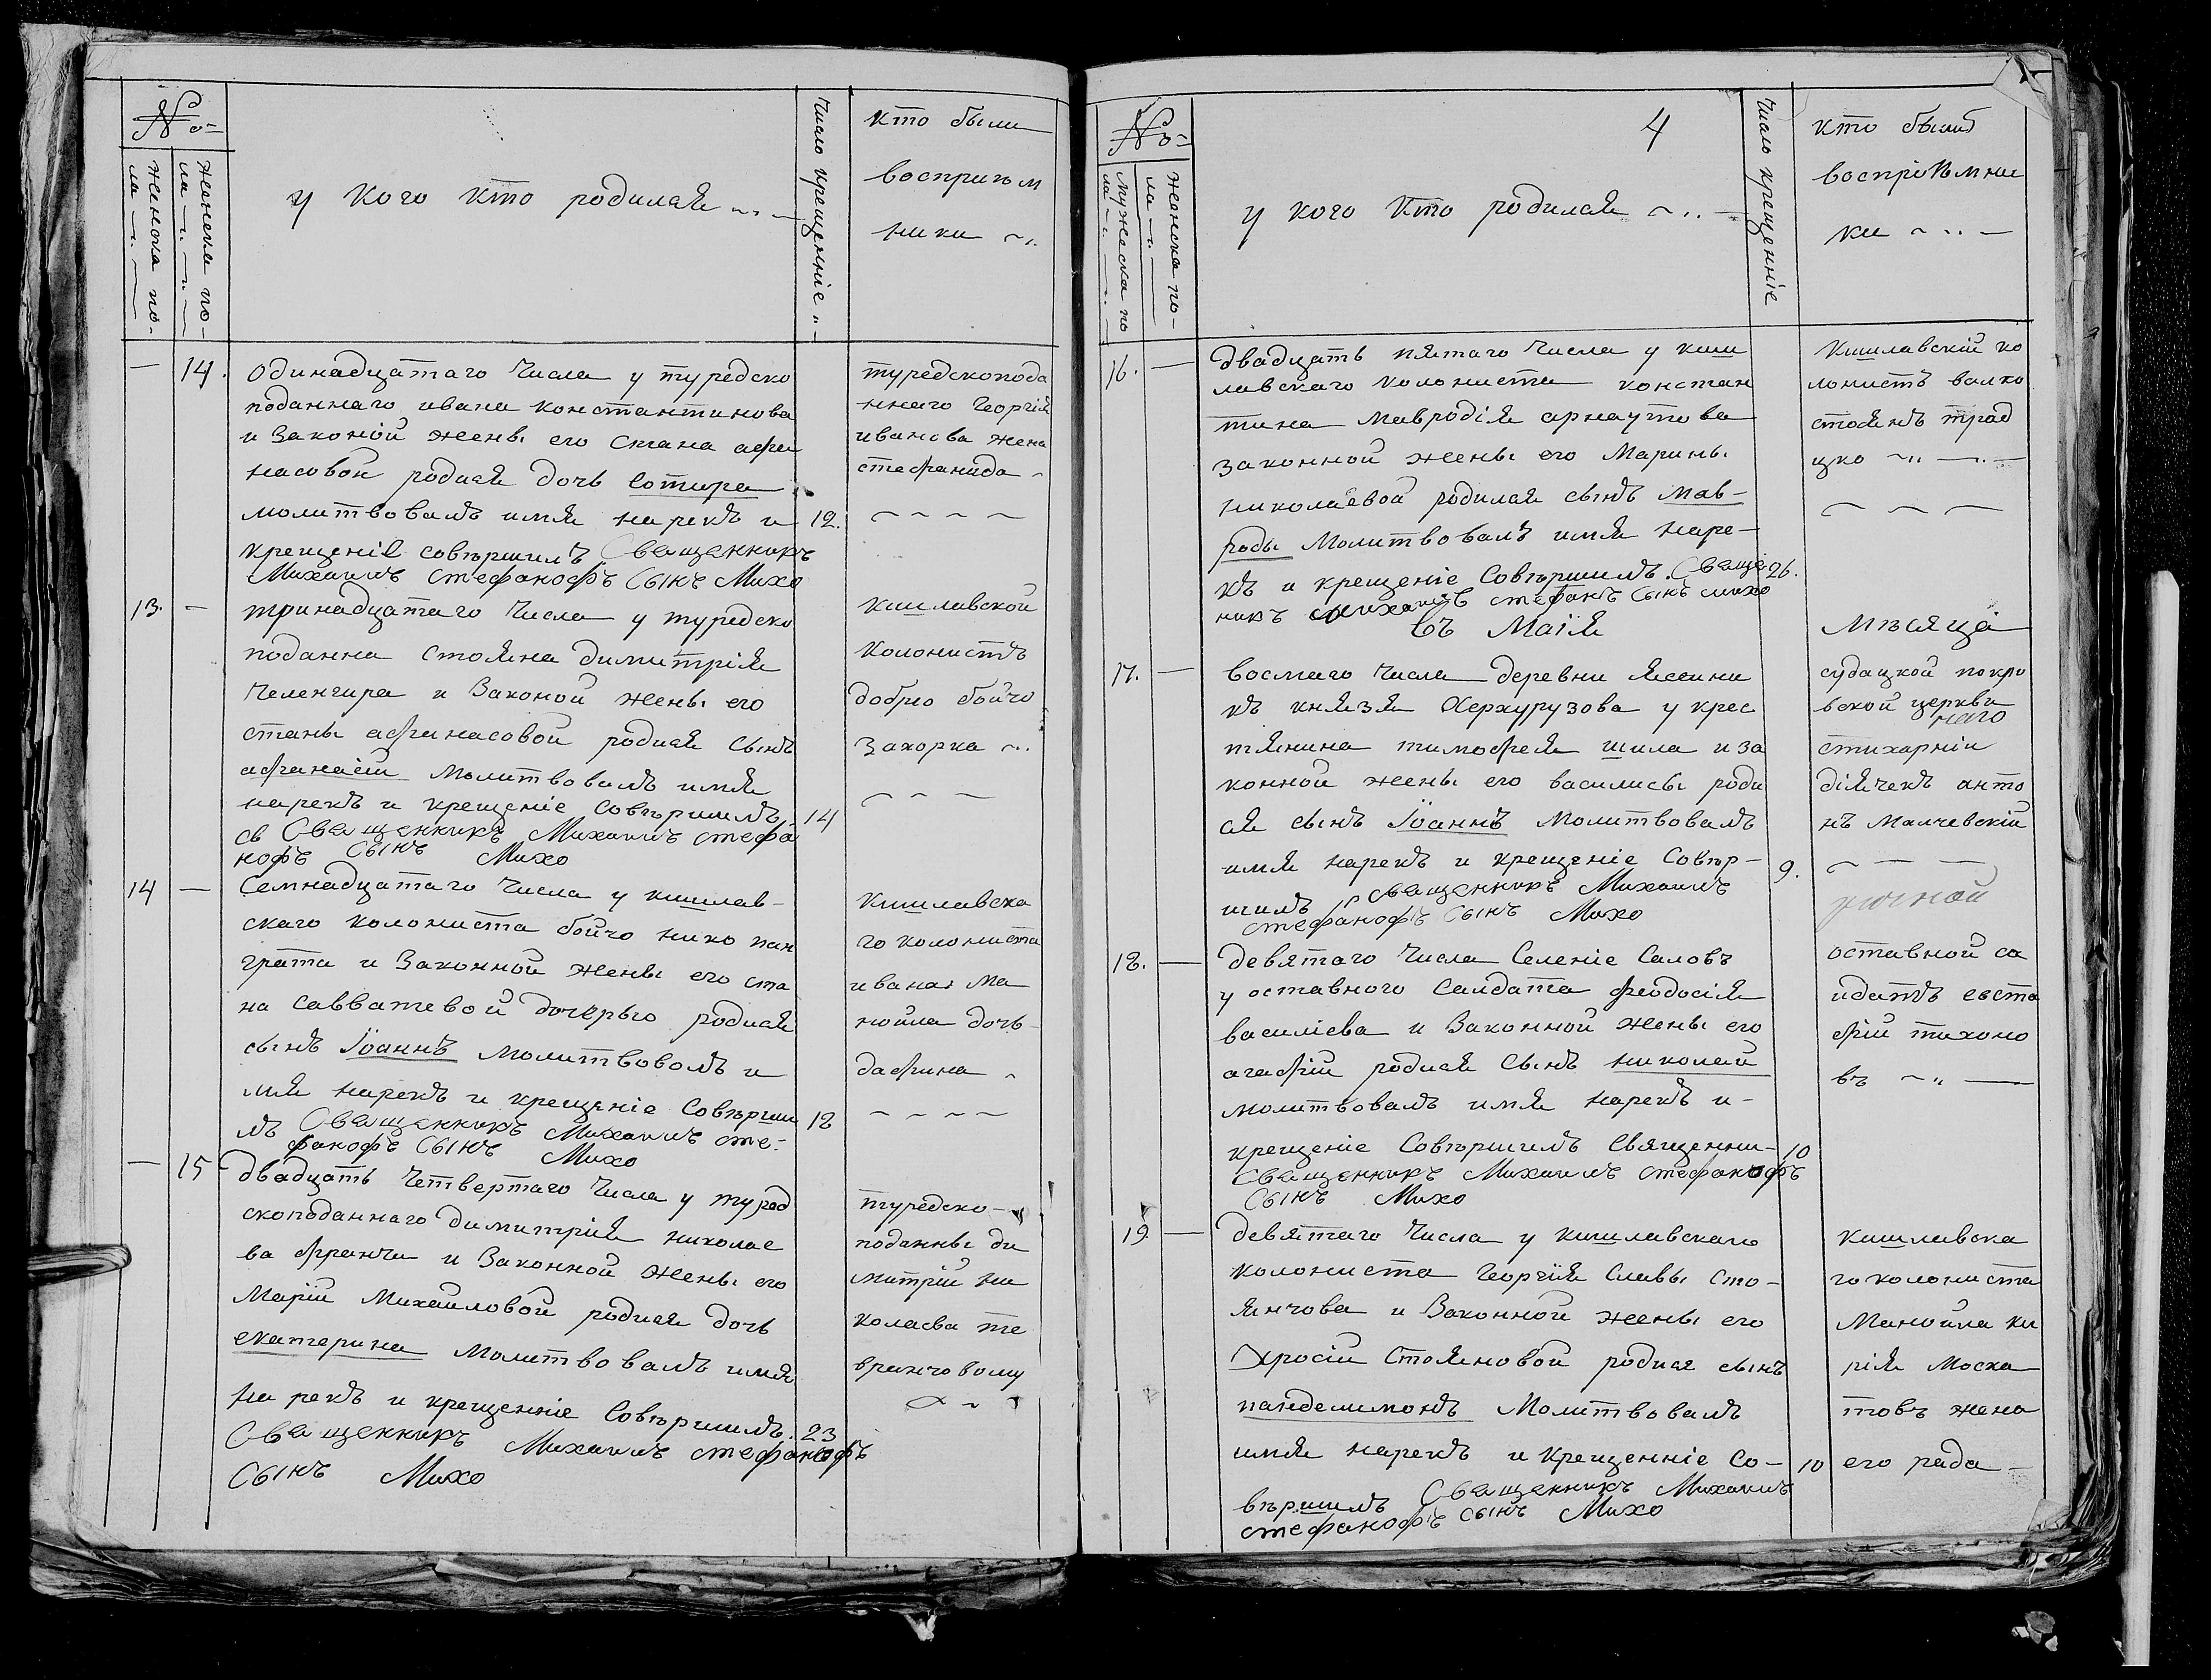 №
Женска по-
ла
Женска по-
ла
у кого кто родился
Число крещенніе
кто были
восприѣм
ники
14.
одинадцатаго Числа у турецско
поданнаго ивана константинова
и Законой жены его стана афа
насовой родися дочь сотира
молитвовалъ имя нарекъ и
крещеніе совѣршилъ Священникъ
Михаилъ стефанофъ Сынъ Михо
12.
турецскопода
ннаго Георгія
иванова жена
стефанида
13.
тринадцатаго Числа у турецско
поданна стояна димитрія
Челенгира и Законой жены его
станы афанасовой родися Сынъ
афанасій молитвовалъ имя
нарекъ и крещеніе Совѣршилъ
съ Священникъ Михаилъ стефа
нофъ Сынъ Михо
14
кишлавской
колонистъ
добрю бойчо
захорка
14
Семнадцатаго Числа у кишлав-
скаго колониста бойчо нико пан
грата и Законной жены его ста
на савватевой дочерью родися
сынъ Іоаннъ молитвовалъ и
мя нарекъ и крещеніе Совѣрши
лъ Священникъ Михаилъ сте-
фанофъ Сынъ Михо
18
кишлавска
го колониста
ивана Ма
нойла дочь
дафина
15
двадцать Четвертаго Числа у турец
скоподаннаго димитрія николае
ва франчи и Законной жены его
Маріи Михайловой родися дочь
екатерина молитвовалъ имя
на рекъ и крещенніе Совѣршилъ.
Священникъ Михаилъ стефанофъ
Сынъ Михо
23
турецско-
поданны ди
митрій ни
колаева те
вранчовому
№
Женска по-
ла
Мужеска по
ла
4
у кого кто родился
Число крещенніе
кто былъ
воспріѣмни
ки
16.
двадцать пятаго Числа у киш
лавскаго колониста констан
тина мавродія арнаутова
законной жены его Марины
николаевой родился сынъ мав-
роды Молитвовалъ имя наре-
къ и крещеніе Совѣршилъ. Свяще
никъ Михаилъ стефанъ Сынъ михо
26.
Кишлавскій ко
лонистъ волко
стоянъ трад
цко
въ Маія
Мѣсяца
17.
восмаго Числа деревни
къ князя Херхурузова у крес
тянина тимофея шила и за
конной жены его василисы роди
ся сынъ Іоаннъ Молитвовалъ
имя нарекъ и крещеніе Совѣр-
шилъ Священникъ Михаилъ
стефанофъ Сынъ Михо
9.
судацкой покро
вской церкви
наго
стихарніи
діячекъ анто
нъ Малчевскій
18.
девятаго Числа Селеніе Саловъ
у оставного Салдата феодосія
василіева и Законной жены его
агафіи родися Сынъ николай
молитвовалъ имя нарекъ и-
крещеніе Совѣршилъ Священни-
Священникъ Михаилъ стефанофъ
Сынъ Михо
10
оставной са
лдатъ евста
фій тихоно
въ
19.
девятаго Числа у кишлавскаго
колониста Георгія Славы Сто-
янчова и Законной жены его
Хросіи Стояновой родися сынъ
панделимонъ Молитвовалъ
имя нарекъ и крещенніе Со-
вѣршилъ Священникъ Михаилъ
стефанофъ Сынъ Михо
10
кишлавска
го колониста
Манойла ки
рія Моска
товъ жена
его рада